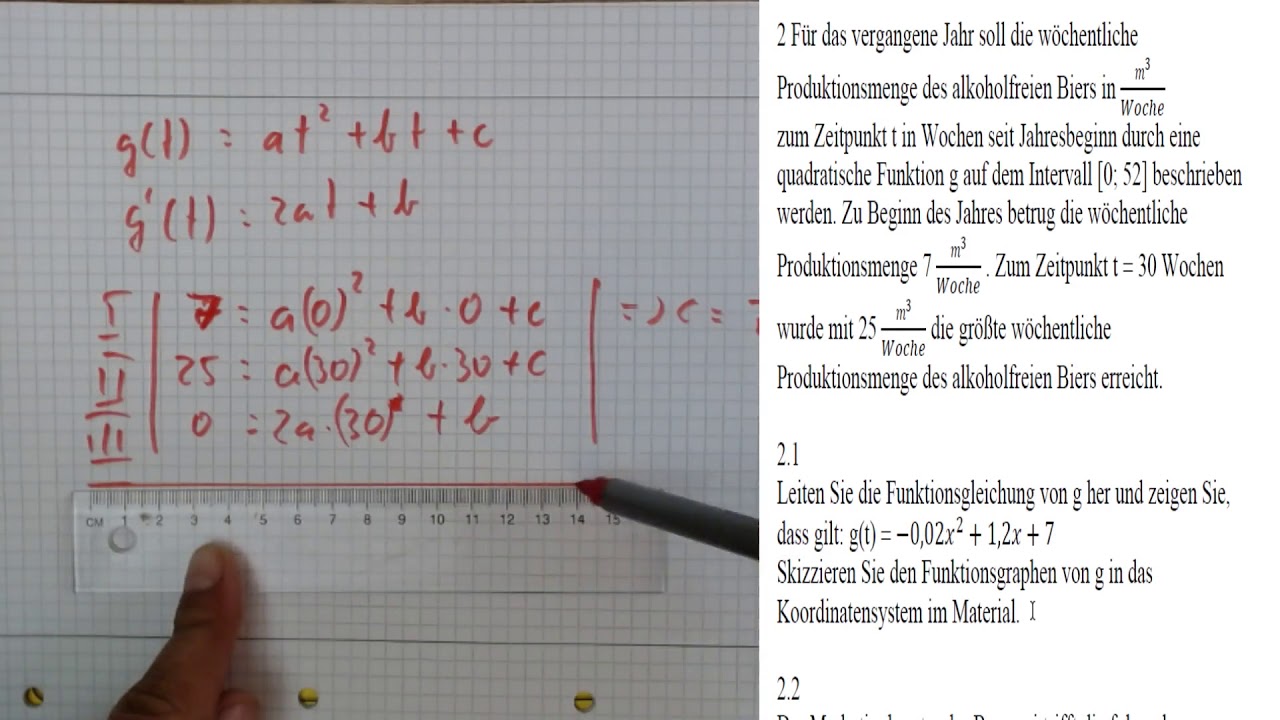 g(t) = at² + bt + c
g'(t) = 2at + b
I 7 = a(0)² + b · 0 + c => c = 7
II 25 = a(30)² + b · 30 + c
III 0 = 2a · (30) + b
CM 1 2 3 4 5 6 7 8 9 10 11 12 13 14 15
2 Für das vergangene Jahr soll die wöchentliche
Produktionsmenge des alkoholfreien Biers in m³/Woche
zum Zeitpunkt t in Wochen seit Jahresbeginn durch eine
quadratische Funktion g auf dem Intervall [0; 52] beschrieben
werden. Zu Beginn des Jahres betrug die wöchentliche
Produktionsmenge 7 m³/Woche . Zum Zeitpunkt t = 30 Wochen
wurde mit 25 m³/Woche die größte wöchentliche
Produktionsmenge des alkoholfreien Biers erreicht.
2.1
Leiten Sie die Funktionsgleichung von g her und zeigen Sie,
dass gilt: g(t) = −0,02x² + 1,2x + 7
Skizzieren Sie den Funktionsgraphen von g in das
Koordinatensystem im Material.
2.2